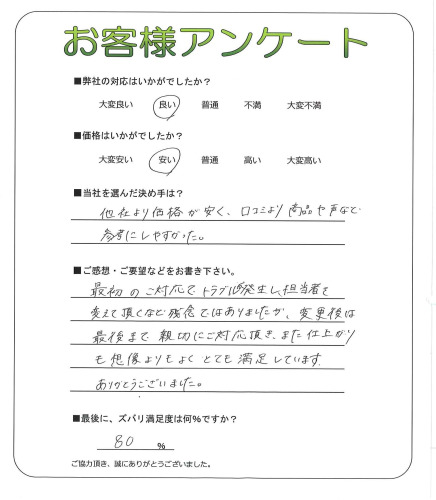 お客様アンケート
■弊社の対応はいかがでしたか？
大変良い 良い 普通 不満 大変不満
■価格はいかがでしたか？
大変安い 安い 普通 高い 大変高い
■当社を選んだ決め手は？
他社より価格が安く、口コミより商品や声など
参考にしやすかった。
■ご感想・ご要望などをお書き下さい。
最初のご対応でトラブル発生し、担当者を
変えて頂くなど残念ではありましたが、変更後は
最後まで親切にご対応頂き、また仕上がり
も想像よりもよくとても満足しています
ありがとうございました。
■最後に、ズバリ満足度は何%ですか？
80 %
ご協力頂き、誠にありがとうございました。